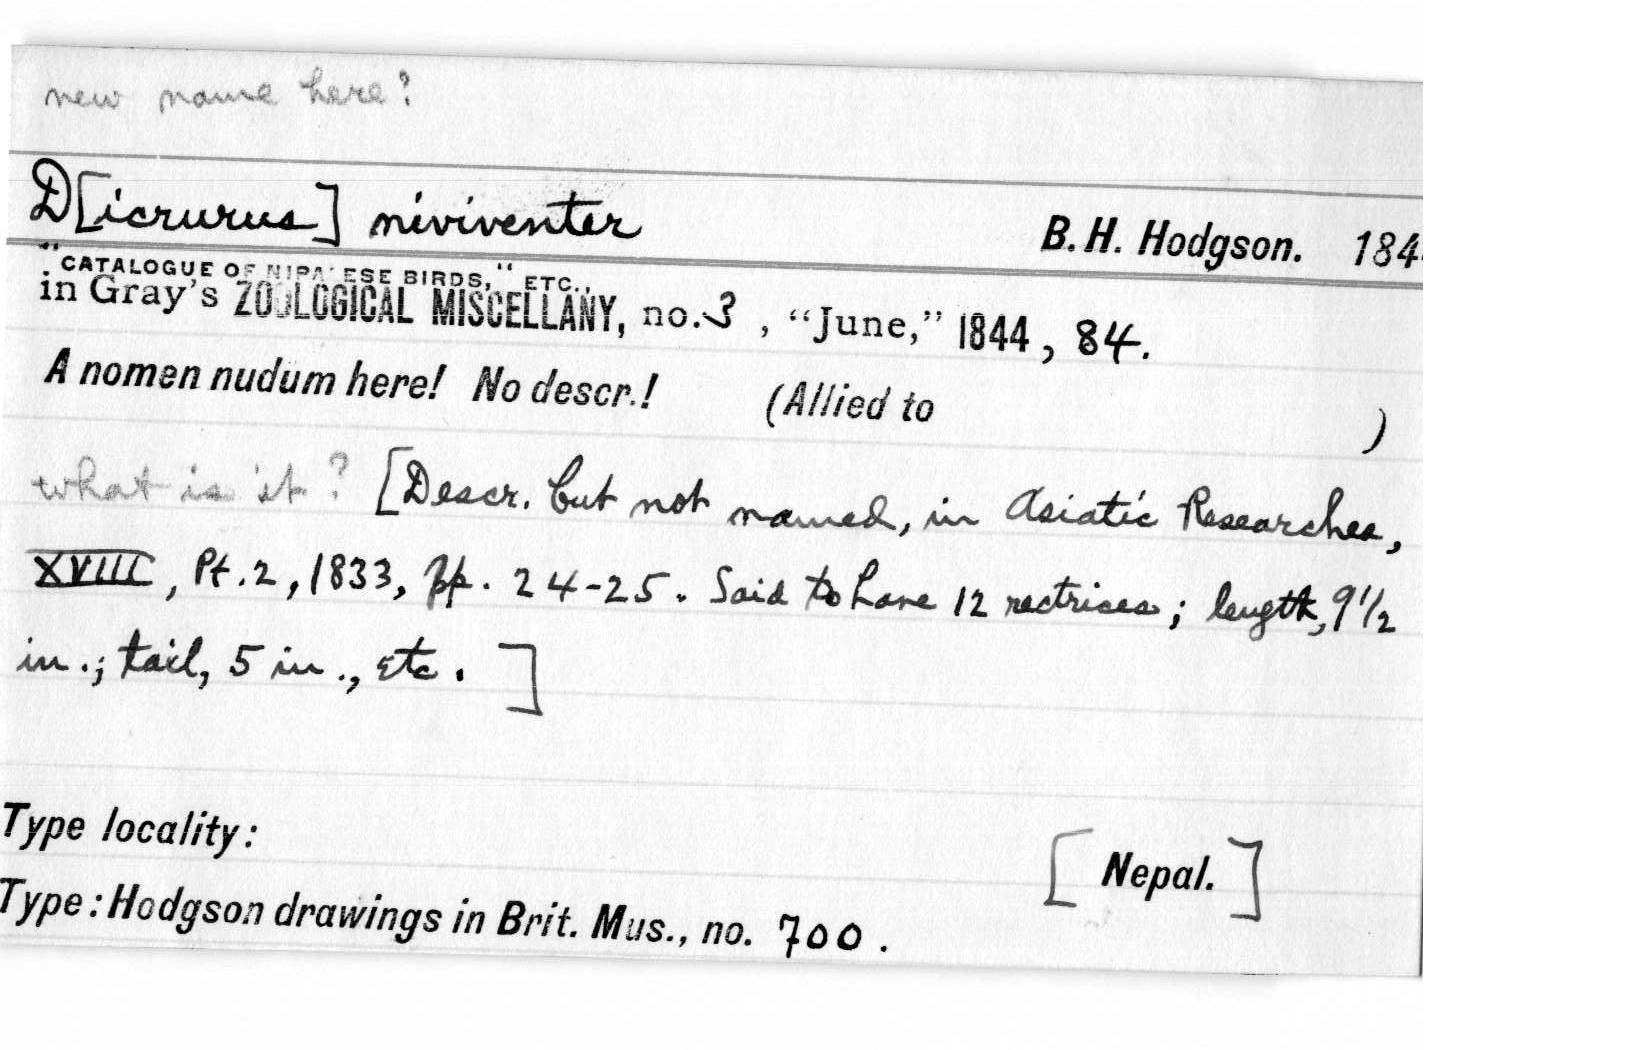 new name here?
D[icrurus] niviventer B. H. Hodgson. 184
"CATALOGUE OF NIPA ESE BIRDS," ETC.,
in Gray's ZOOLOGICAL MISCELLANY, no. 3, "June," 1844, 84.
A nomen nudum here! No descr.! (Allied to )
what is it? [Descr. but not named, in Asiatic Researches,
XVIII, Pt. 2, 1833, pp. 24-25. Said to have 12 rectrices; length, 9 1/2
in.; tail, 5 in., etc.]
Type locality: [Nepal.]
Type: Hodgson drawings in Brit. Mus., no. 700.